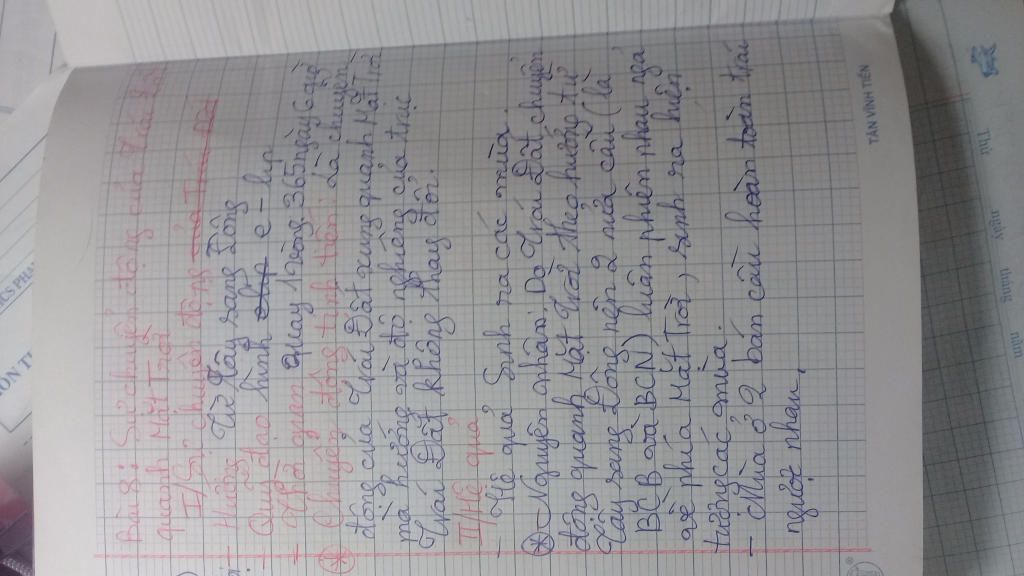 Bài 8: Sự chuyển động của Trái Đất
quanh Mặt Trời
I/ Sự chuyển động của Trái Đất
- Hướng Từ Tây sang Đông
- Quỹ đạo hình elip e-lip
- Thời gian quay 1 vòng 365 ngày 6 giờ
* Chuyển động tịnh tiến: là chuyển
động của Trái Đất xung quanh Mặt Trời
mà hướng và độ nghiêng của trục
Trái Đất không thay đổi.
II/ Hệ quả
- Hệ quả sinh ra các mùa.
* Nguyên nhân: Do Trái Đất chuyển
động quanh Mặt Trời theo hướng từ
Tây sang Đông nên 2 nửa cầu (là
BCB và BCN) luân phiên nhau ngả
về phía Mặt Trời, sinh ra hiện
tượng các mùa.
- Mùa ở 2 bán cầu hoàn toàn trái
ngược nhau.
TÂN VĨNH TIẾN
Thứ ngày tháng năm